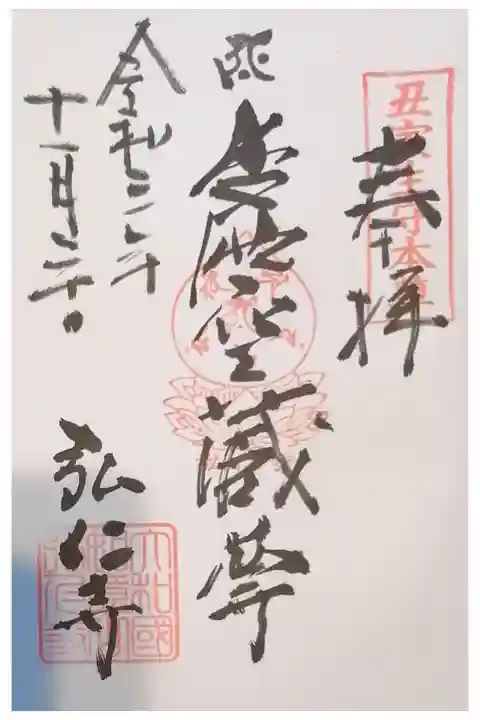 丑寅生守本尊
奉拝
虚空蔵尊
令和二年
十一月
弘仁寺
大和國